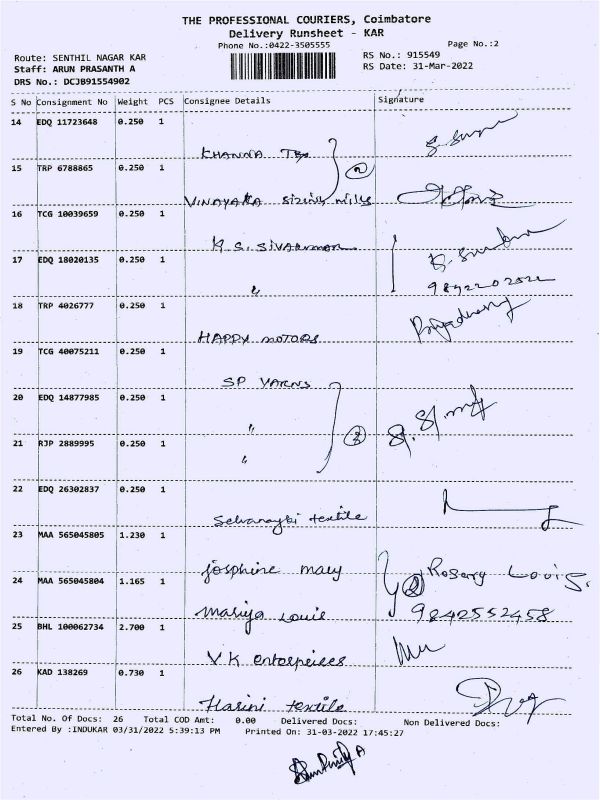 THE PROFESSIONAL COURIERS, Coimbatore
Delivery Runsheet - KAR
Phone No.:0422-3505555
Page No.:2
Route: SENTHIL NAGAR KAR
RS No.: 915549
Staff: ARUN PRASANTH A
RS Date: 31-Mar-2022
DRS No.: DCJB91554902
S No Consignment No Weight PCS Consignee Details Signature
14 EDQ 11723648 0.250 1
KHANNA Tex
15 TRP 6788865 0.250 1
VINAYAKA sizing mills
16 TCG 10039659 0.250 1
K S. SIVAKUMAR
17 EDQ 18020135 0.250 1
"
18 TRP 4026777 0.250 1
HAPPY MOTORS
19 TCG 40075211 0.250 1
SP YARNS
20 EDQ 14877985 0.250 1
"
21 RJP 2889995 0.250 1
"
22 EDQ 26302837 0.250 1
textile
23 MAA 565045805 1.230 1
josphine mary Rosary Louis.
24 MAA 565045804 1.165 1
mariya Louis 9842552458
25 BHL 100062734 2.700 1
VK enterpeises
26 KAD 138269 0.730 1
Harini textile
Total No. Of Docs: 26 Total COD Amt: 0.00 Delivered Docs: Non Delivered Docs:
Entered By :INDUKAR 03/31/2022 5:39:13 PM Printed On: 31-03-2022 17:45:27